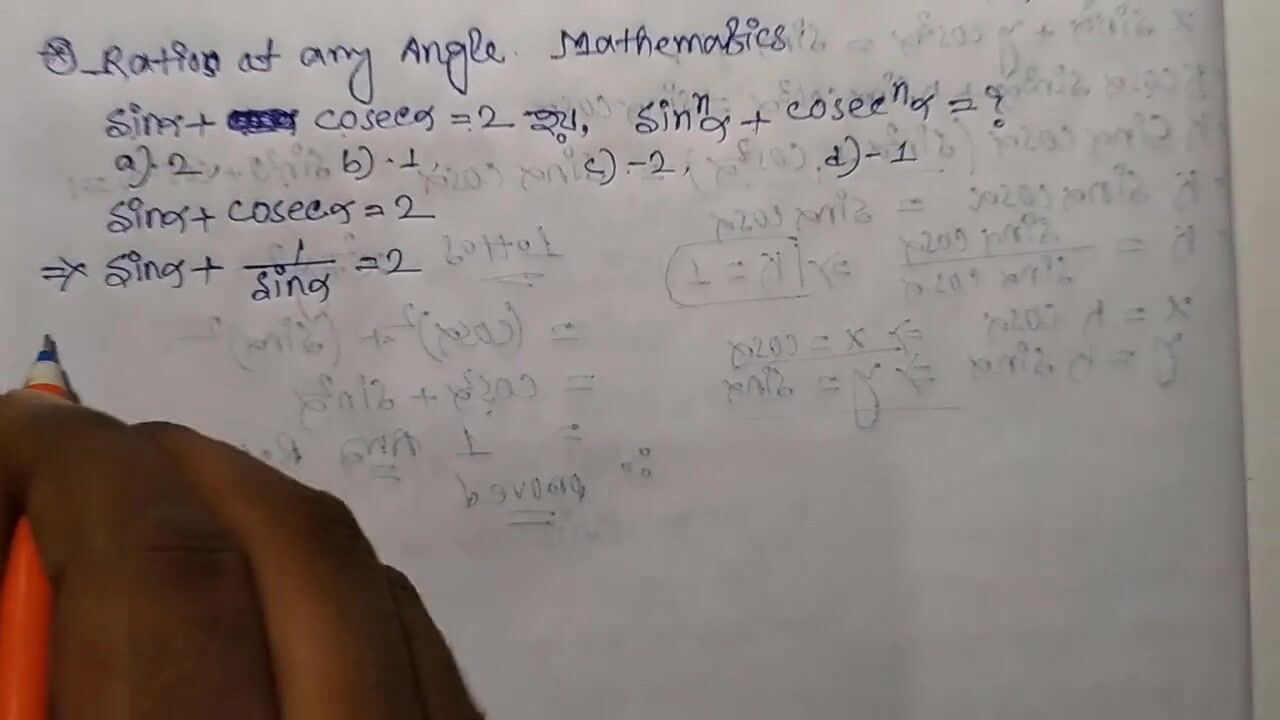 ⊛ Ratios at any Angle. Mathematics
sinα + cosecα = 2 হয়, sinⁿα + cosecⁿα = ?
a) 2, b) 1, c) -2, d) -1
sinα + cosecα = 2
⇒ sinα + 1/sinα = 2